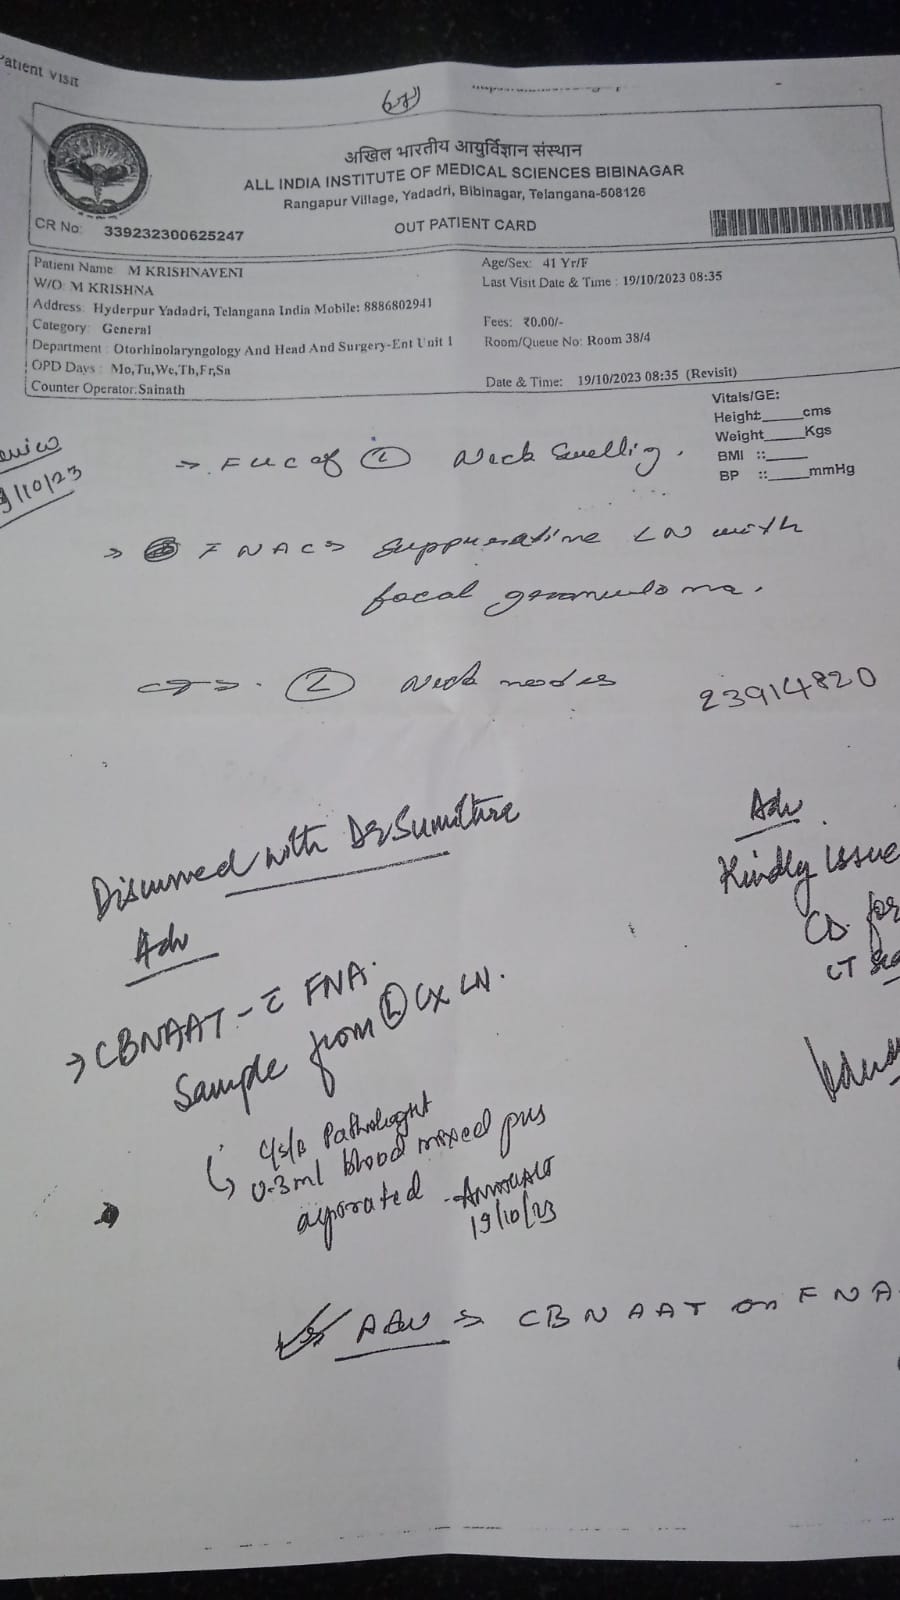 Patient Visit
अखिल भारतीय आयुर्विज्ञान संस्थान
ALL INDIA INSTITUTE OF MEDICAL SCIENCES BIBINAGAR
Rangapur Village, Yadadri, Bibinagar, Telangana-508126
OUT PATIENT CARD
CR No: 339232300625247
Patient Name: M KRISHNAVENI
W/O: M KRISHNA
Address: Hyderpur Yadadri, Telangana India Mobile: 8886802941
Category: General
Department : Otorhinolaryngology And Head And Surgery-Ent Unit 1
OPD Days : Mo,Tu,We,Th,Fr,Sa
Counter Operator: Sainath
Age/Sex: 41 Yr/F
Last Visit Date & Time : 19/10/2023 08:35
Fees: ₹0.00/-
Room/Queue No: Room 38/4
Date & Time: 19/10/2023 08:35 (Revisit)
Vitals/GE:
Height_____cms
Weight_____Kgs
BMI ::_____
BP ::_____mmHg
/10/23
→ F U C of Ⓛ Neck Swelling.
→ FNAC → suppurative LN with
focal granuloma.
CT → Ⓛ Neck nodes
23914820
Discussed with Dr
Adv
→ CBNAAT - c̄ FNA.
Sample from Ⓛ Cx LN.
C/S/B Pathologist
0.3ml blood mixed pus
aspirated
19/10/23
Adv
Kindly issue
CD. for
CT
Adv → CBNAAT on FNA